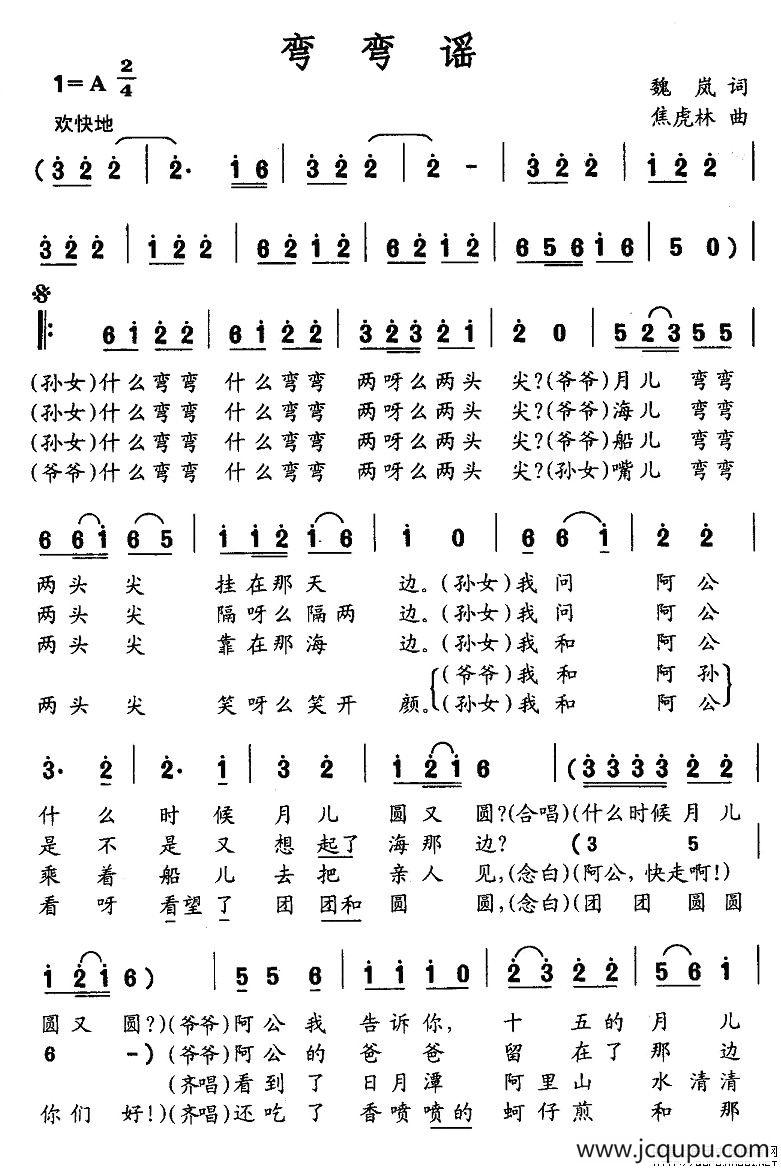 弯弯谣
1=A 2/4
魏岚 词
欢快地
焦虎林 曲
(3 2 2 | 2· 1 6 | 3 2 2 | 2 - | 3 2 2 | 1 2 2 |
3 2 2 | 1 2 2 | 6 2 1 2 | 6 2 1 2 | 6 5 6 1 6 | 5 0) |
6 1 2 2 | 6 1 2 2 | 3 2 3 2 1 | 2 0 | 5 2 3 5 5 |
(孙女)什么弯弯 什么弯弯 两呀么两头 尖?(爷爷)月儿 弯弯
(孙女)什么弯弯 什么弯弯 两呀么两头 尖?(爷爷)海儿 弯弯
(孙女)什么弯弯 什么弯弯 两呀么两头 尖?(爷爷)船儿 弯弯
(爷爷)什么弯弯 什么弯弯 两呀么两头 尖?(孙女)嘴儿 弯弯
6 6 1 6 5 | 1 1 2 1 6 | 1 0 | 6 6 1 | 2 2 |
两头 尖 挂在那天 边。(孙女)我问 阿公
两头 尖 隔呀么隔两 边。(孙女)我问 阿公
两头 尖 靠在那海 边。(孙女)我和 阿公
(爷爷)我和 阿孙
两头 尖 笑呀么笑开 颜。(孙女)我和 阿公
3· 2 | 2· 1 | 3 2 | 1 2 1 6 | (3 3 3 3 2 2 |
什么 时候 月儿 圆又 圆?(合唱)(什么时候月儿
是不 是又 想起了 海那 边? (3 5
乘着 船儿 去把 亲人 见,(念白)(阿公,快走啊!)
看呀 看望了 团团和 圆 圆,(念白)(团团圆圆
1 2 1 6) | 5 5 6 | 1 1 1 0 | 2 3 2 2 | 5 6 1 |
圆又 圆?)(爷爷)阿公我 告诉你, 十五的 月儿
6 -)(爷爷)阿公的 爸爸 留在了 那边
(齐唱)看到了 日月潭 阿里山 水清清
你们 好!)(齐唱)还吃了 香喷喷的 蚵仔煎 和那
www.jcqupu.com